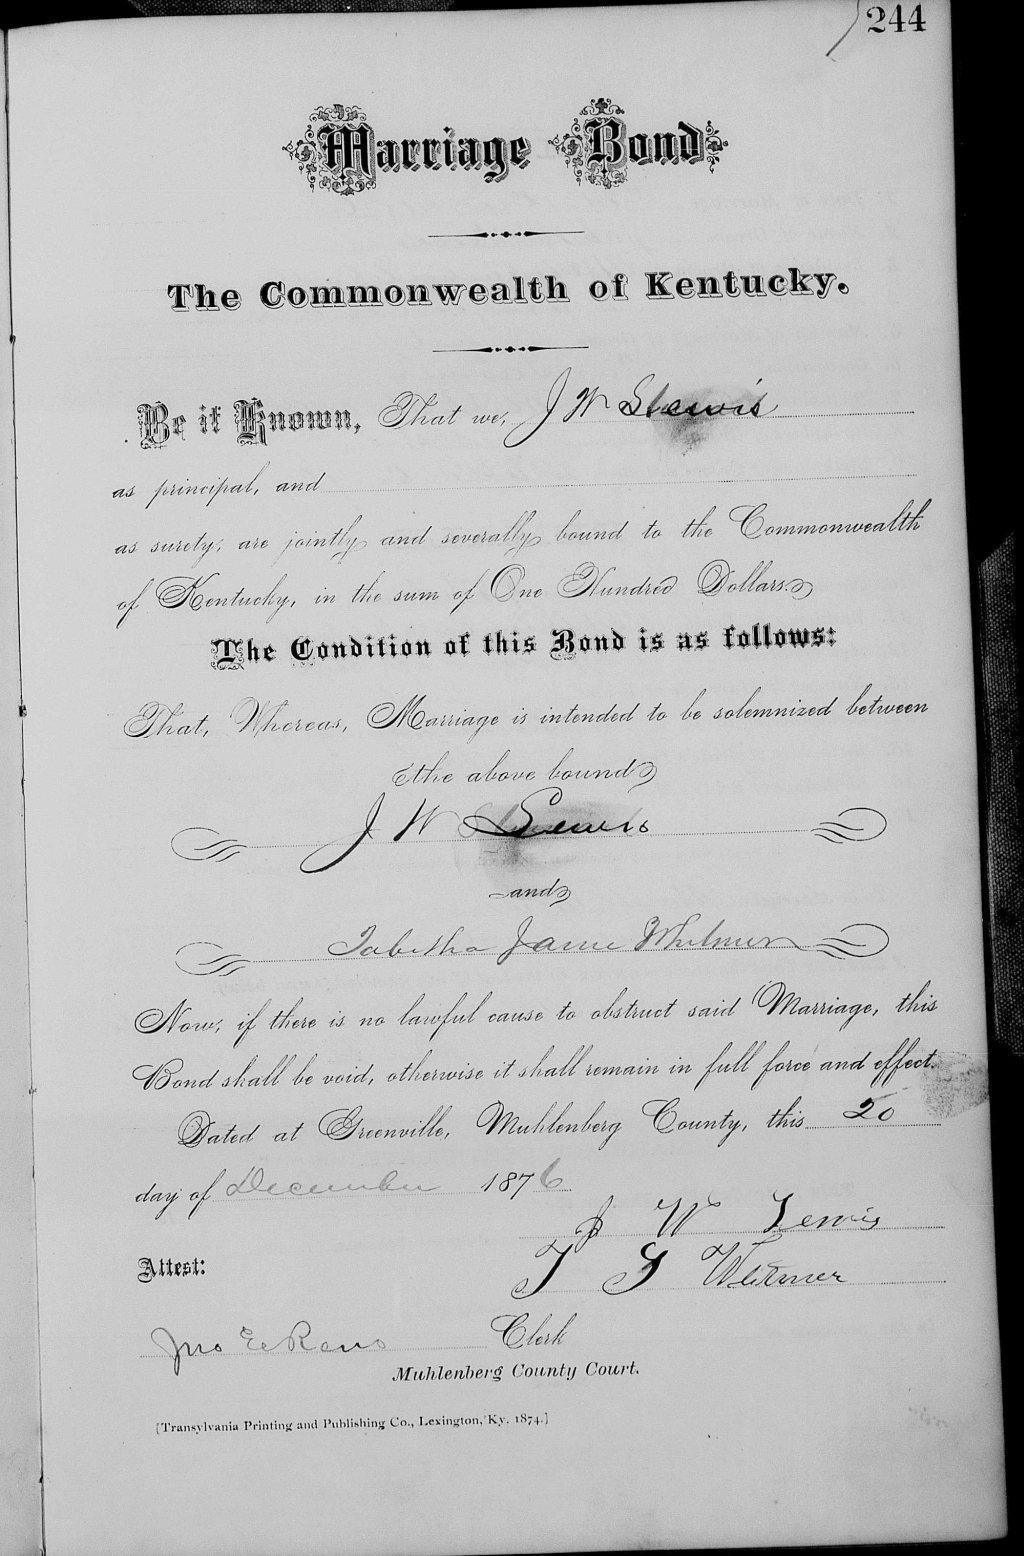 244
Marriage Bond
The Commonwealth of Kentucky.
Be it Known, That we, J W Lewis
as principal, and
as surety, are jointly and severally bound to the Commonwealth
of Kentucky, in the sum of One Hundred Dollars.
The Condition of this Bond is as follows:
That, Whereas, Marriage is intended to be solemnized between
the above bound
J W Lewis
and
Tabitha Jane Whitmer
Now, if there is no lawful cause to obstruct said Marriage, this
Bond shall be void, otherwise it shall remain in full force and effect.
Dated at Greenville, Muhlenberg County, this 20
day of December 1876
J W Lewis
Attest:
T G Whitmer
Jno E Reno Clerk
Muhlenberg County Court.
[Transylvania Printing and Publishing Co., Lexington, Ky. 1874.]